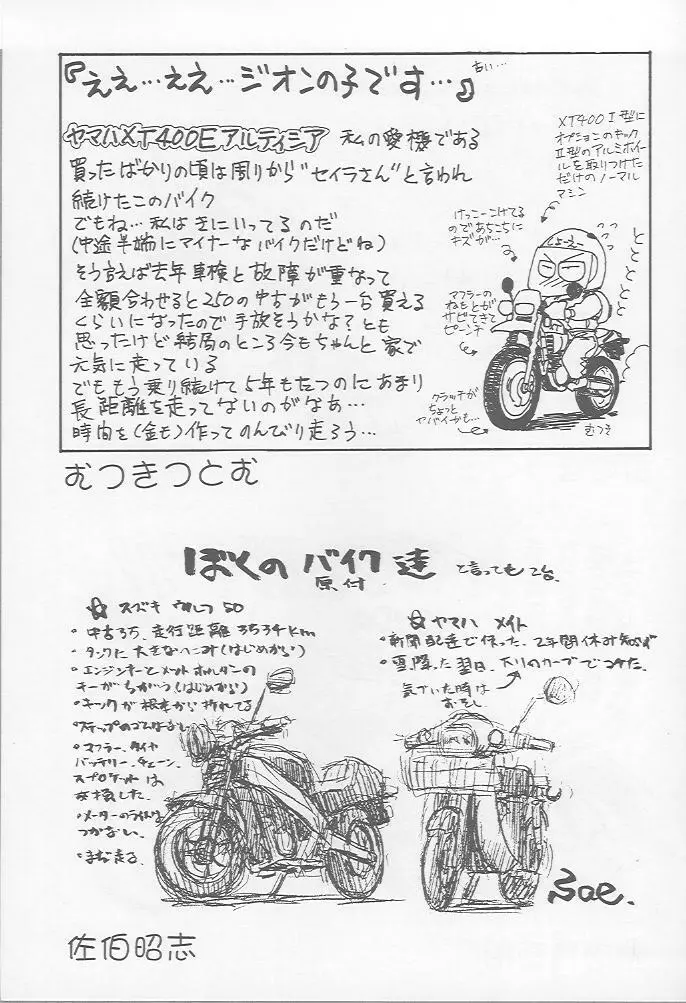 『ええ…ええ…ジオンの子です…』
古い…
ヤマハXT400Eアルティシア 私の愛機である
買ったばかりの頃は周りから“セイラさん”と言われ
続けたこのバイク
でもね…私はきにいってるのだ
(中途半端にマイナーなバイクだけどね)
そう言えば去年車検と故障が重なって
全額合わせると250の中古がもう一台買える
くらいになったので手放そうかな？とも
思ったけど結局のところ今もちゃんと家で
元気に走っている
でももう乗り続けて5年もたつのにあまり
長距離を走ってないのがなあ…
時間を(金も)作ってのんびり走ろう…
XT400Ⅰ型に
オプションのキック
Ⅱ型のアルミホイー
ルを取りつけた
だけのノーマル
マシン
けっこーこけてる
のであちこちに
キズが…
しょーえー
トトトトトト
マフラーの
ねもとが
サビてきて
ピーンチ
クラッチが
ちょっと
ヤバイかも…
むつき
むつきつとむ
ぼくのバイク達 と言っても2台.
原付
☆スズキ ウルフ50
・中古3万、走行距離3534km
・タンクに大きなへこみ(はじめから)
・エンジンキーとメットホルダーの
キーがちがう(はじめから)
・キックが根元から折れてる
・ステップのゴムはなし
・マフラー、タイヤ
バッテリー、チェーン、
スプロケットは
交換した.
・メーターのライトは
つかない.
・まだ走る.
☆ヤマハ メイト
・新聞配達で使った. 2年間休み知らず
・雪降った翌日、下りのカーブでコケた.
気づいた時は
おそし.
Sae.
佐伯昭志